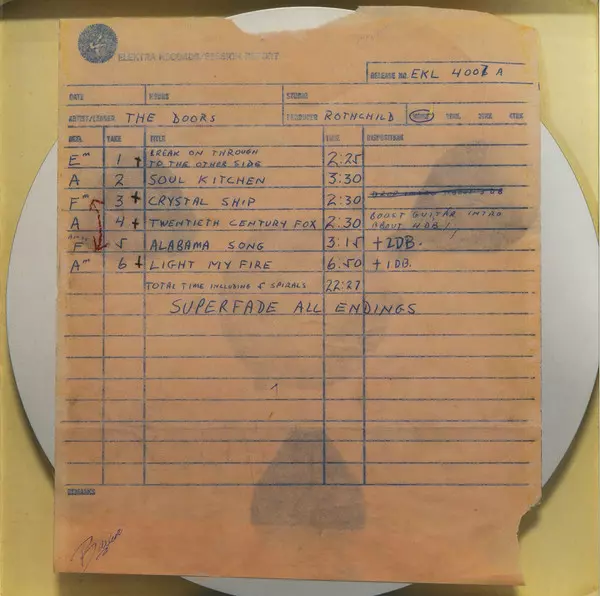 ELEKTRA RECORDS/SESSION REPORT
RELEASE NO. EKL 4007 A
DATE HOURS STUDIO
ARTIST/LEADER THE DOORS PRODUCER ROTHCHILD MONO
TAKE TITLE TIME
Em 1 + BREAK ON THROUGH TO THE OTHER SIDE 2:25
A 2 SOUL KITCHEN 3:30
Fm 3 + CRYSTAL SHIP 2:30
A 4 + TWENTIETH CENTURY FOX 2:30 BOOST GUITAR INTRO ABOUT 4DB!
F 5 ALABAMA SONG 3:15 +2DB.
Am 6 + LIGHT MY FIRE 6:50 +1DB.
TOTAL TIME INCLUDING 5 SPIRALS 22:27
SUPERFADE ALL ENDINGS
REMARKS